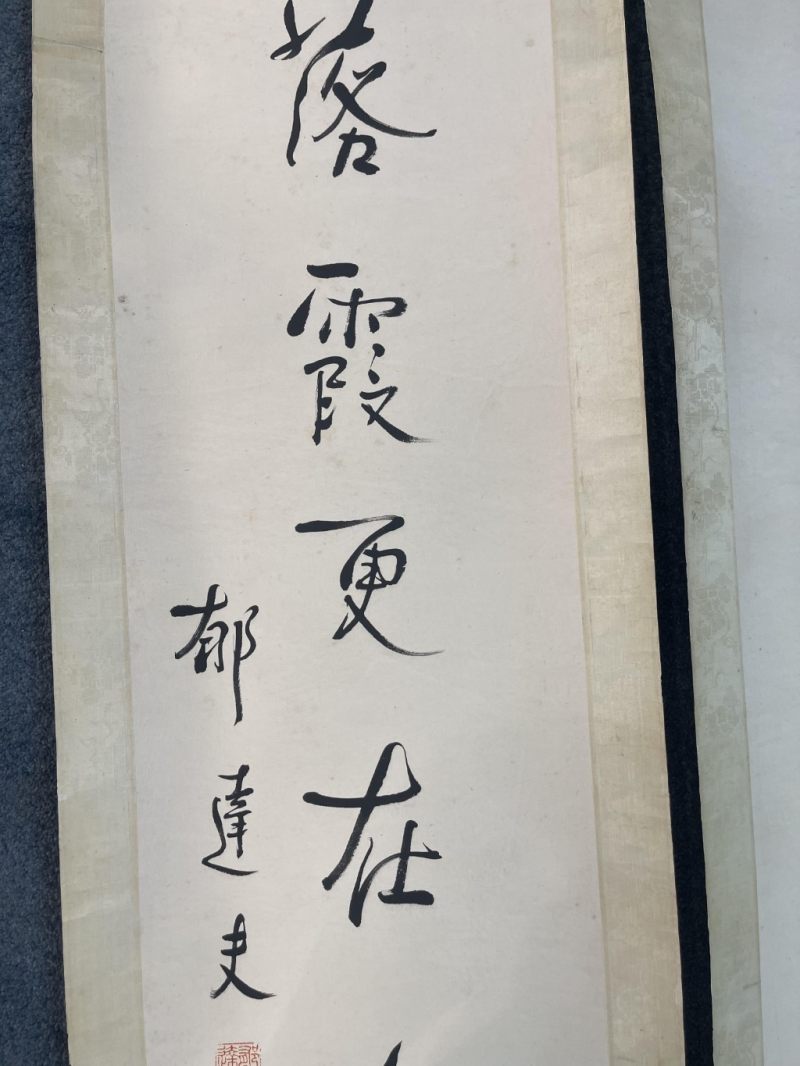 落霞更在
郁達夫